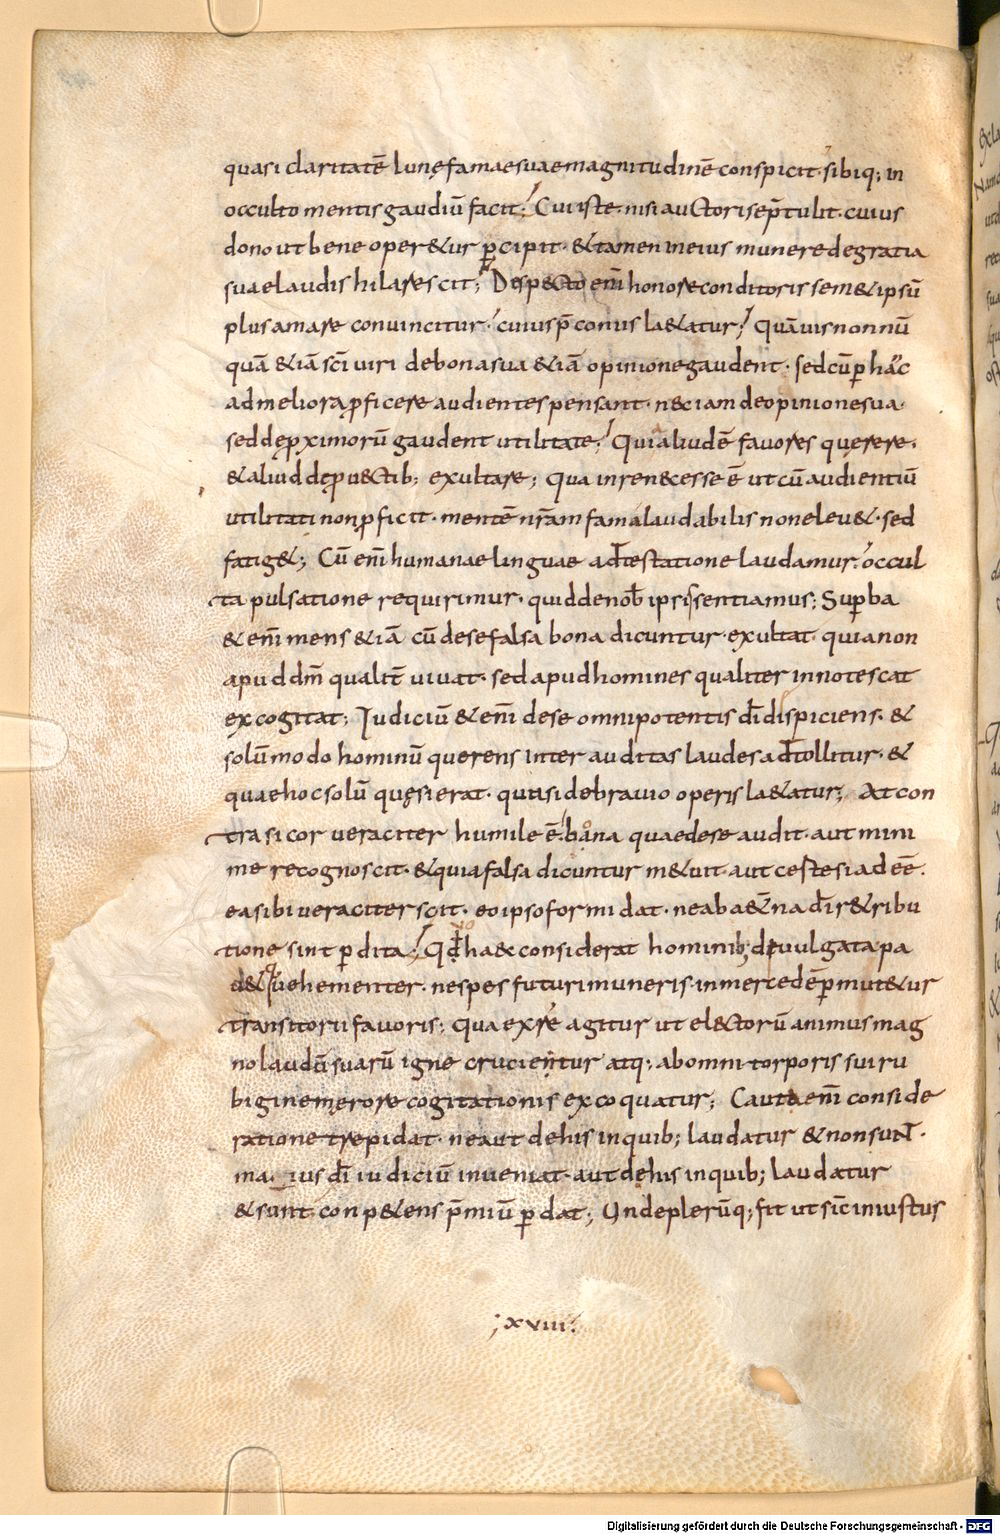 quasi claritatē lunę famae suae magnitudinē conspicit· sibiq; in
occulto mentis gaudiū facit; Cui iste nisi auctori se p̄tulit· cuius
dono ut bene oper&ur p̲cipit· & tamen in eius munere de gratia
suae laudis hilarescit; Despecto eni̅ honore conditoris sem&ipsū
plus amare convincitur· cuius p̄coniis la&atur; Quāvis nonnū
quā &iā sc̄i viri de bona sua &iā opinione gaudent· sed cū p̲ hāc
ad meliora p̲ficere audientes pensant· nec iam de opinione sua·
sed de p̲ximorū gaudent utilitate; Quia aliud ē favores querere·
& aliud de p̲uectib; exultare; Qua in re necesse ē ut cū audientiū
utilitati non p̲ficit· mentē nr̄am fama laudabilis non elev&· sed
fatig&; Cū eni̅ humanae linguae adtestatione laudamur· occul
ta pulsatione requirimur· quid de nob̄ ipsi sentiamus; Sup̲ba
& eni̅ mens &iā cū de se falsa bona dicuntur exultat· quia non
apud dm̄ qualit̄ vivat· sed apud homines qualiter innotescat
excogitat; Judiciū & eni̅ de se omnipotentis dī dispiciens· &
solūmodo hominū querens inter auditas laudes adtollitur· &
quae hoc solū quęsierat· quasi de bravio operis la&atur; At con
tra si cor veraciter humile ē· bona quae de se audit· aut mini
me recognoscit· & quia falsa dicuntur m&uit· aut certe si adeē·
ea sibi veraciter scit· eo ipso formidat· ne ab a&̄na dī r&ribu
tione sint p̲dita; Qd̄ haec considerat hominib; divulgata pa
v&q; vehementer· ne spes futuri muneris· in mercedē p̲mut&ur
transitorii favoris; Qua ex rē agitur ut electorū animus mag
no laudū suarū igne crucientur atq; ab omni torporis sui ru
bigine merore cogitationis excoquatur; Cauta eni̅ conside
ratione trepidat· ne aut de his in quib; laudatur & non sunt̄·
ma ius dī iudiciū inveniat· aut de his in quib; laudatur
& sunt conp&ens p̄miū p̲dat; Unde plerūq; fit ut sic̄ iniustus
; xviii·
Digitalisierung gefördert durch die Deutsche Forschungsgemeinschaft - DFG